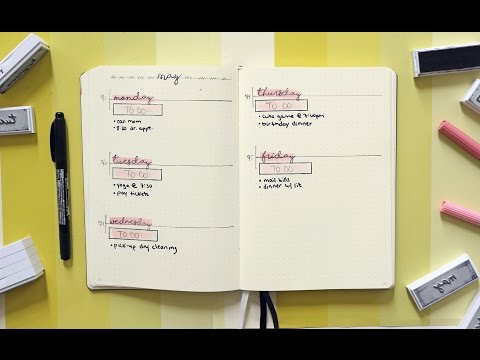 may
monday
TO DO
• call mom
• 8:30 dr. appt.
tuesday
TO DO
• yoga @ 7:30
• pay tickets
wednesday
TO DO
• pick-up dry cleaning
thursday
TO DO
• cubs game @
• birthday dinner
friday
TO DO
• mail bills
• dinner w/
work